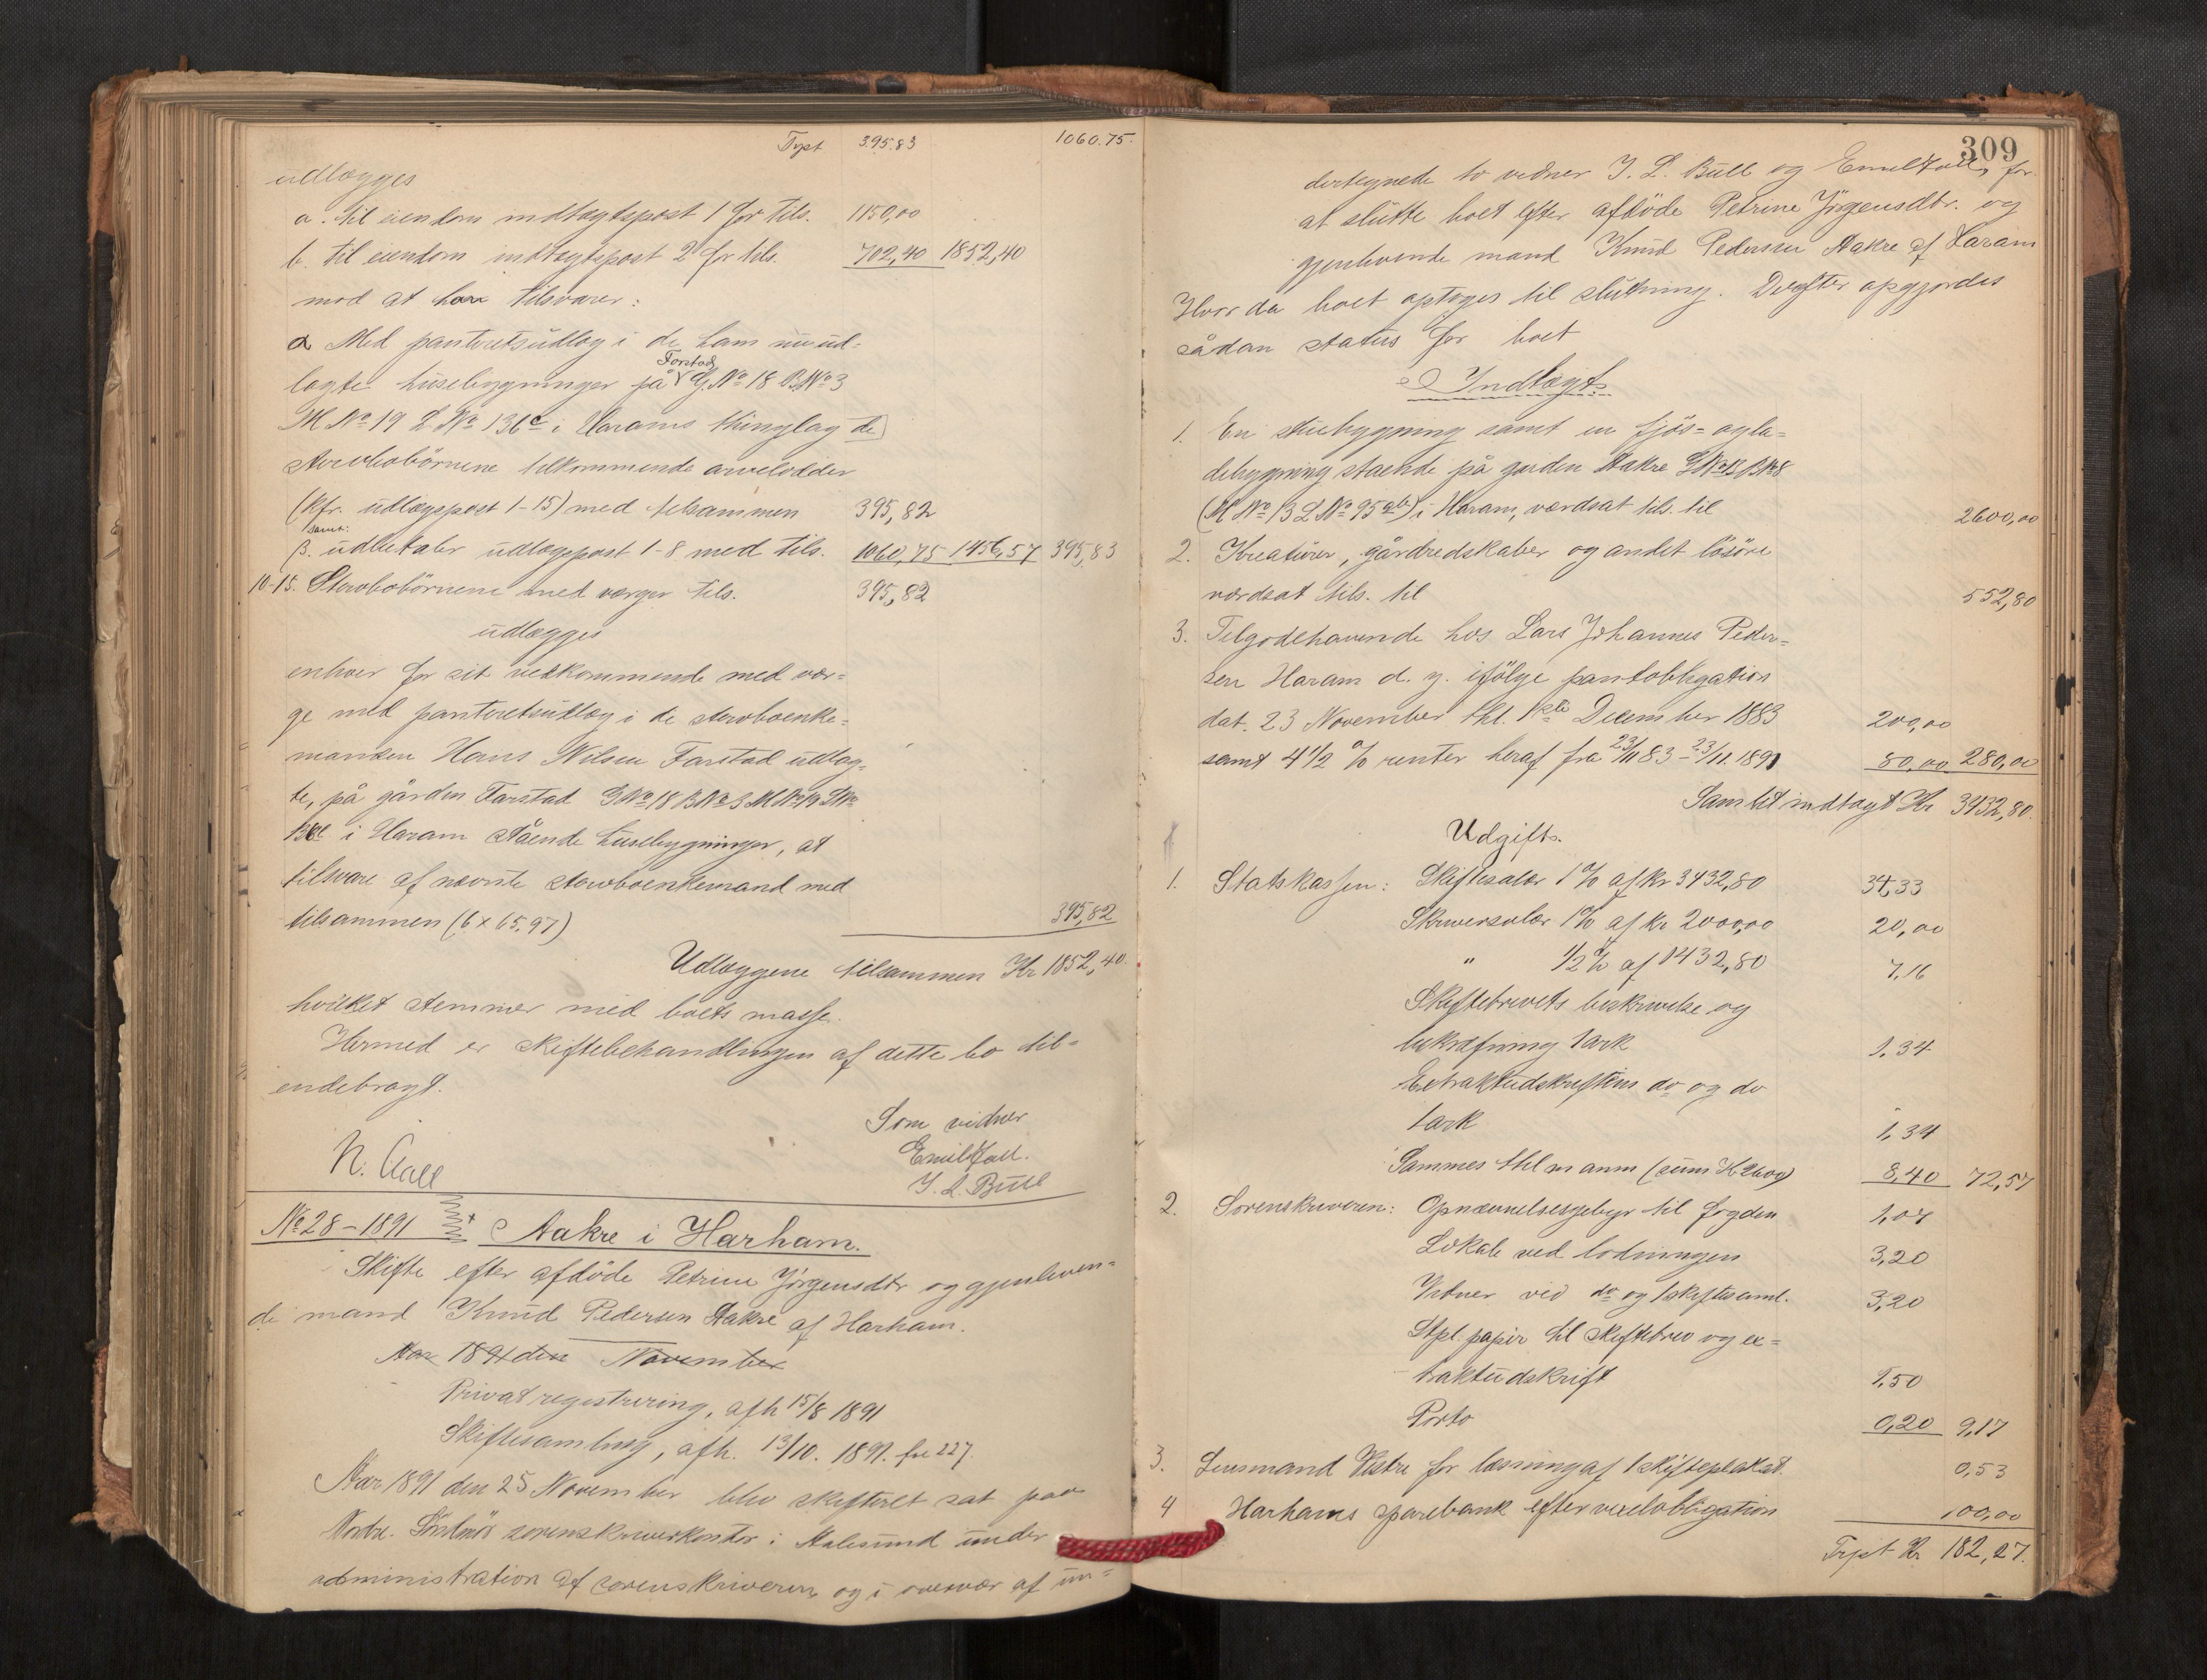 Trpt 395.83 1060.75.
udlægges
a. til eiendom indtægtspost 1 for tils. 1150,00
b. til eiendom indtægtspost 2 for tils. 702,40 1852,40
mod at han tilsvarer:
α Med panteretsudlæg i de ham nu ud-
lagte husebygninger på Farstad G.No 18 B.No 3
M No 19 L No 136c i Harams thinglag de
stervbobörnene tilkommende arvelodder
(kfr. udlægspost 1-15) med tilsammen 395,82
samt:
β. udbetaler udlægspost 1-8 med tils. 1060,75 1456,57 395,83
10-15. Stervbobörnene med værger tils. 395,82
udlægges
enhver for sit vedkommende med vær-
ge med panteretsudlæg i de stervboenke-
manden Hans Nilsen Farstad udlag-
te, på gården Farstad GNo 18 BNo 3 MNo 19 LNo
136c i Haram stående husebygninger, at
tilsvare af nævnte stervboenkemand med
tilsammen (6 x 65,97) 395,82
Udlæggene tilsammen Kr 1852,40.
hvilket stemmer med boets masse.
Hermed er skiftebehandlingen af dette bo til-
endebragt.
Som vidner
N. Aall Emil Fall.
J. L. Bull
No 28-1891 Aakre i Harham.
Skifte efter afdöde Petrine Jörgensdtr og gjenleven-
de mand Knud Pedersen Aakre af Harham.
Aar 1891 den November
Privat registrering, afh 15/8 1891
Skiftesamling, afh. 13/10. 1891. fol 227.
Aar 1891 den 25 November blev skifteret sat paa
Nordre Söndmör sorenskriverkontor i Aalesund under
administration af sorenskriveren og i overvær af un-
309
dertegnede to vidner J. L. Bull og Emil Fall, for
at slutte boet efter afdöde Petrine Jörgensdtr. og
gjenlevende mand Knud Pedersen Aakre af Haram
Hvor da boet optoges til slutning. Derefter opgjordes
sådan status for boet
Indtægt
1. En stuebygning samt en fjös- og la-
debygning stående på gården Aakre GNo 13 BNo 8
(M No 13 L No 95ab) i Haram, værdsat tils. til 2600,00
2. Kreaturer, gårdredskaber og andet lösöre
værdsat tils. til 552,80
3. Tilgodehavende hos Lars Johannes Peder-
sen Haram d. y. ifölge pantobligation
dat. 23 November thl. 1ste December 1883 200,00
samt 4 1/2 % renter heraf fra 23/11 83 - 23/11 1891 80,00 280,00
Samlet indtægt Kr 3432,80.
Udgift.
1. Statskassen: Skiftesalær 1 % af Kr 3432,80 34,33
Skriversalær 1% af Kr 2000,00 20,00
" 1/2 % af 1432,80 7,16
Skiftebrevets beskrivelse og
bekræftning 1 ark 1,34
Extraktudskriftens do og do
1 ark 1,34
Sammes thl m anm (sum K 2600) 8,40 72,57
2. Sorenskriveren: Opnævnelsesgebyr til fogden 1,07
Lokale ved lodningen 3,20
Vidner ved do og 1 skiftesaml. 3,20
Stpl. papir til skiftebrev og ex-
traktudskrift 1,50
Porto 0,20 9,17
3. Lensmand Vestre for læsning af 1 skifteplakat. 0,53
4 Harhams sparebank efter vexelobligation 100,00
Trpt Kr 182,27.